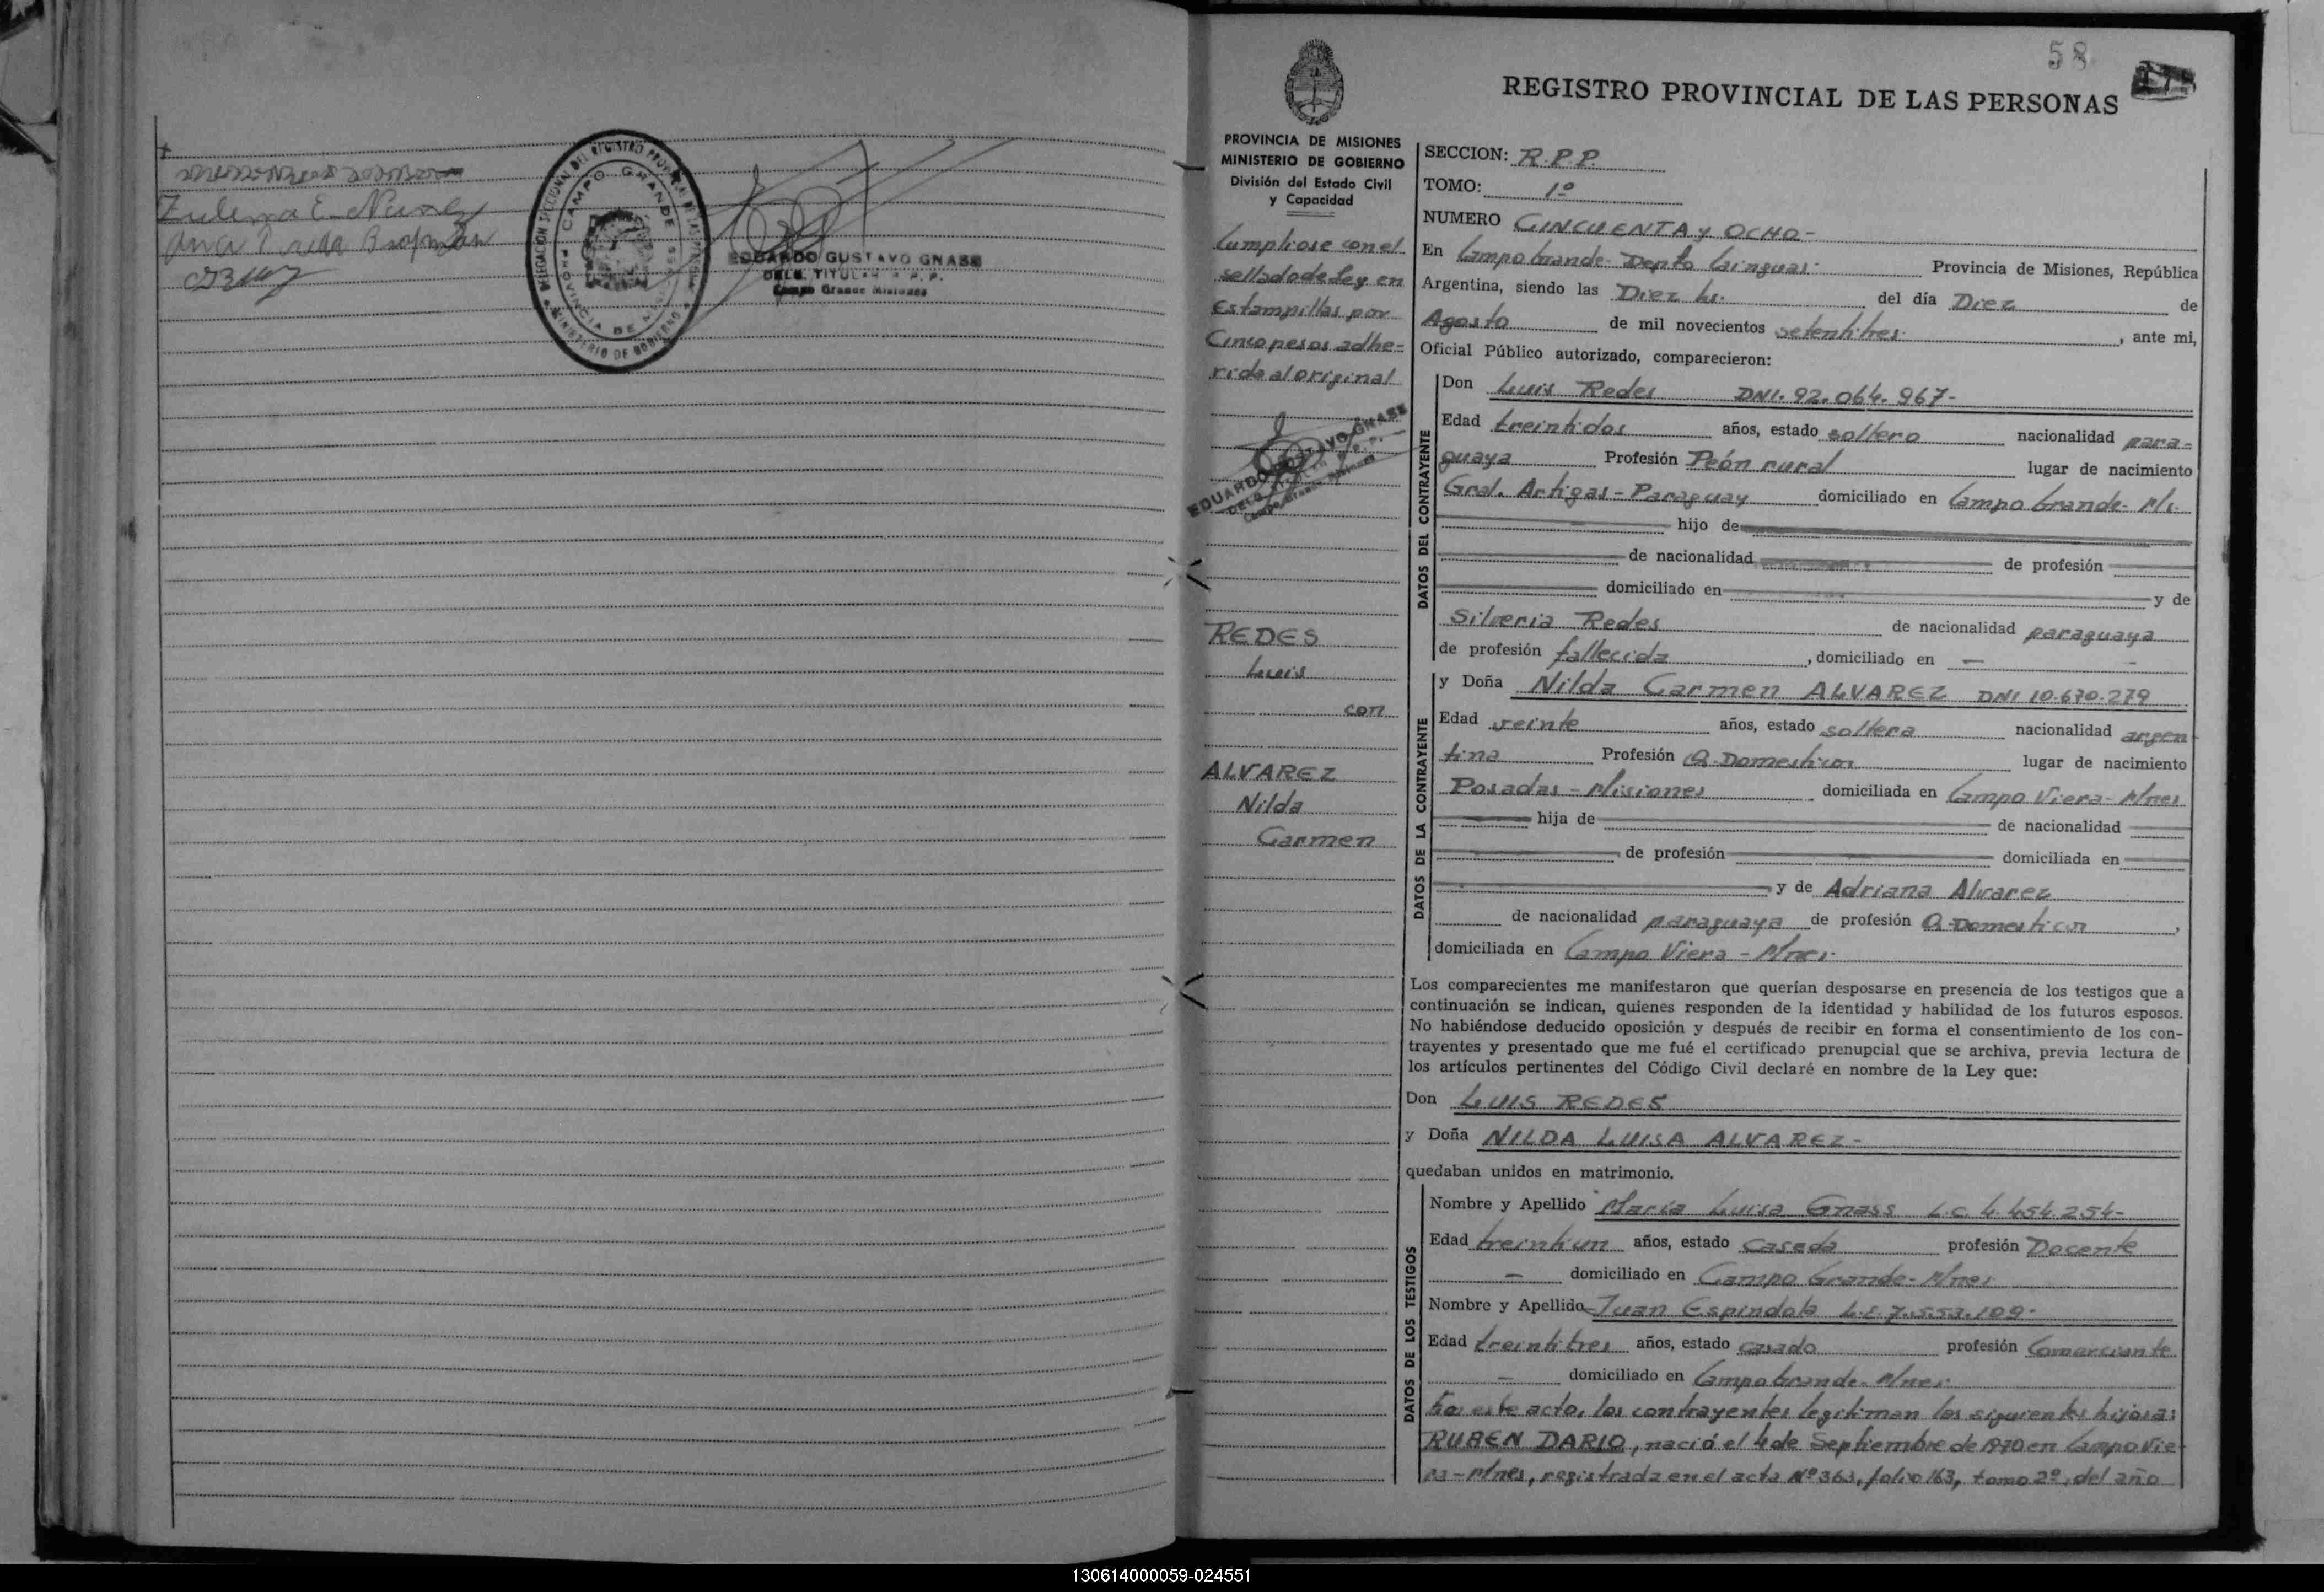 Zulema E. Nuñez
DELEGACION SECCIONAL DEL REGISTRO PROVINCIAL DE LAS PERSONAS
CAMPO GRANDE
PROVINCIA DE MISIONES
MINISTERIO DE GOBIERNO
EDUARDO GUSTAVO GNASS
DELG. TITULAR R. P. P.
Campo Grande Misiones
58
REGISTRO PROVINCIAL DE LAS PERSONAS
PROVINCIA DE MISIONES
MINISTERIO DE GOBIERNO
División del Estado Civil
y Capacidad
Cumpliose con el
sellado de Ley en
Estampillas por
Cinco pesos adhe-
rida al original
EDUARDO GUSTAVO GNASS
DELG. TITULAR R. P. P.
Campo Grande Misiones
REDES
Luis
con
ALVAREZ
Nilda
Carmen
SECCION: R.P.P.
TOMO: 1º
NUMERO CINCUENTA y OCHO-
En Campo Grande- Depto Cainguas- Provincia de Misiones, República
Argentina, siendo las Diez hs. del día Diez de
Agosto de mil novecientos setentitres, ante mi,
Oficial Público autorizado, comparecieron:
DATOS DEL CONTRAYENTE
Don Luis Redes DNI. 92.064.967-
Edad treintidos años, estado soltero nacionalidad para-
guaya Profesión Peón rural lugar de nacimiento
Gral. Artigas - Paraguay domiciliado en Campo Grande- Ms.
hijo de
de nacionalidad de profesión
domiciliado en y de
Silveria Redes de nacionalidad paraguaya
de profesión fallecida, domiciliado en —
DATOS DE LA CONTRAYENTE
y Doña Nilda Carmen ALVAREZ DNI 10.670.279
Edad veinte años, estado soltera nacionalidad argen-
tina Profesión Q. Domesticos lugar de nacimiento
Posadas - Misiones domiciliada en Campo Viera- Mnes
hija de de nacionalidad
de profesión domiciliada en
y de Adriana Alvarez
de nacionalidad paraguaya de profesión Q. Domesticos,
domiciliada en Campo Viera - Mnes.
Los comparecientes me manifestaron que querían desposarse en presencia de los testigos que a
continuación se indican, quienes responden de la identidad y habilidad de los futuros esposos.
No habiéndose deducido oposición y después de recibir en forma el consentimiento de los con-
trayentes y presentado que me fué el certificado prenupcial que se archiva, previa lectura de
los artículos pertinentes del Código Civil declaré en nombre de la Ley que:
Don LUIS REDES
y Doña NILDA LUISA ALVAREZ-
quedaban unidos en matrimonio.
DATOS DE LOS TESTIGOS
Nombre y Apellido María Luisa Gnass L.C. 4.454.254-
Edad treintiun años, estado casada profesión Docente
— domiciliado en Campo Grande- Mnes
Nombre y Apellido Juan Espindola L.E. 7.553.109-
Edad treintitres años, estado casado profesión Comerciante
— domiciliado en Campo Grande- Mnes.
En este acto, los contrayentes legitiman los siguientes hijos:
RUBEN DARIO, nació el 4 de Septiembre de 1970 en Campo Vie-
ra - Mnes, registrada en el acta Nº 363, folio 163, tomo 2º, del año
130614000059-024551